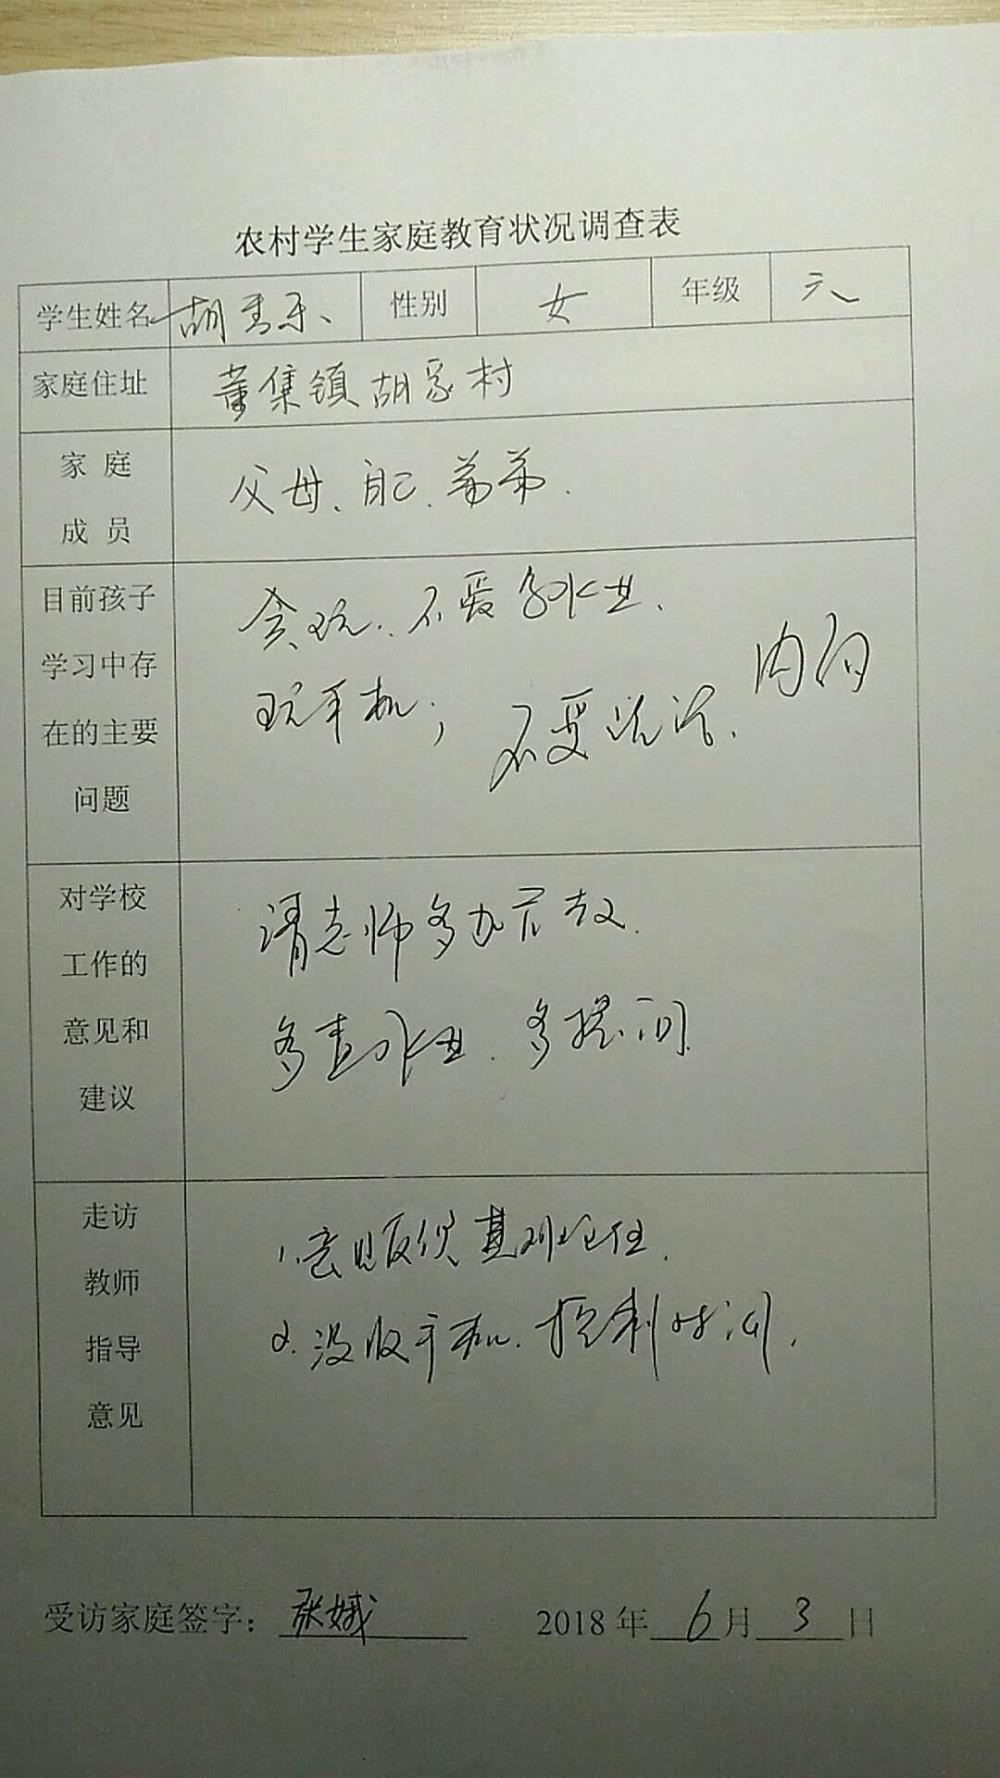 农村学生家庭教育状况调查表
学生姓名 胡 性别 女 年级 六
家庭住址 董集镇胡家村
家庭成员 父母、自己、弟弟.
目前孩子学习中存在的主要问题 贪玩、不爱写作业、
玩手机; 不爱说话. 内向
对学校工作的意见和建议 请老师多加管教.
多查作业. 多提问.
走访教师指导意见 1.意见反馈其班主任.
2.没收手机.控制时间.
受访家庭签字: 张娥 2018年6月3日